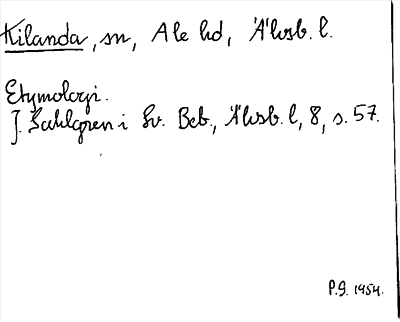 Kilanda, sn, Ale hd, Älvsb. l.
Etymologi.
J. Sahlgren i Sv. Beb., Älvsb. l, 8, s. 57.
P.G. 1954.